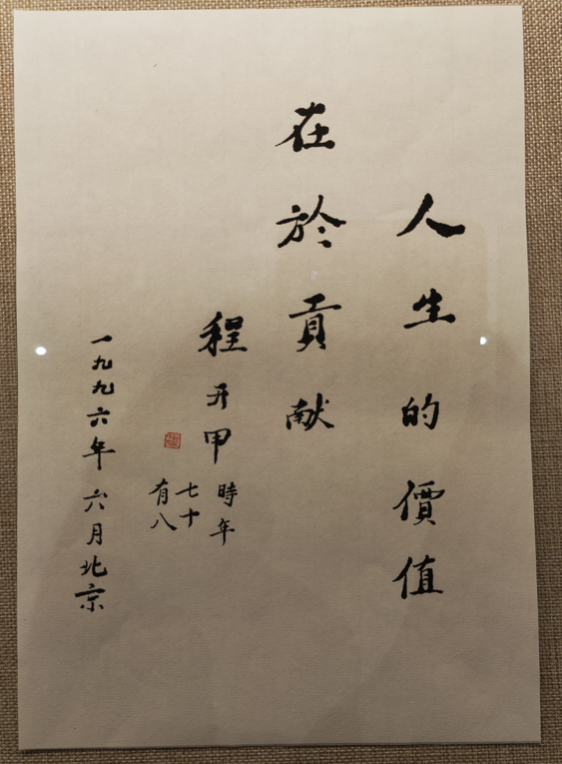 人生的價值
在於貢献
程开甲時年
七十
有八
一九九六年六月北京